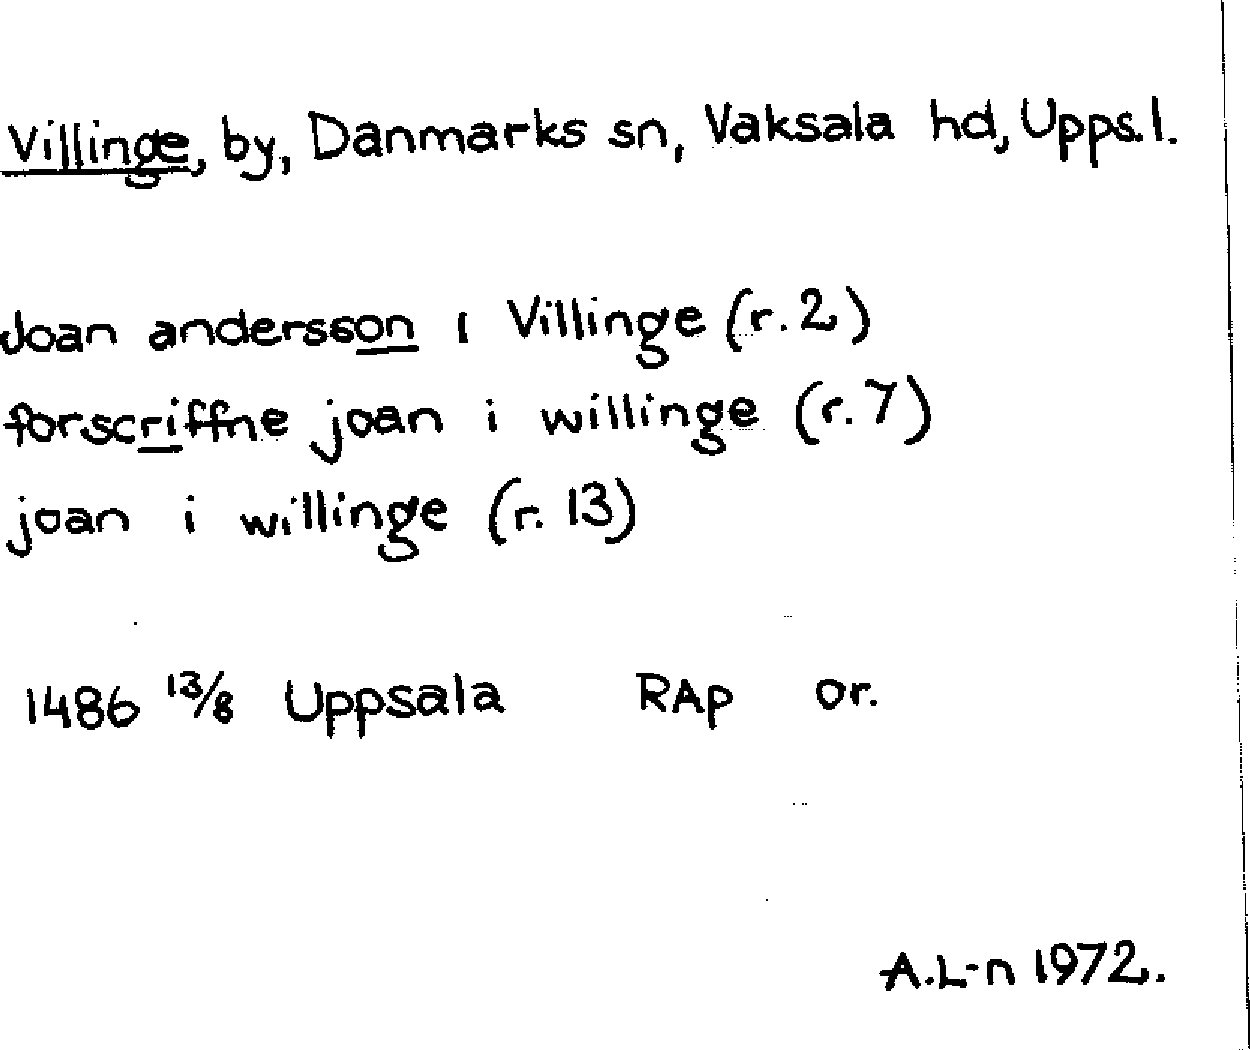 Villinge, by, Danmarks sn, Vaksala hd, Upps.l.
Joan andersson i Villinge (r. 2)
forscriffne joan i willinge (r. 7)
joan i willinge (r. 13)
1486 13/8 Uppsala RAp or.
A.L-n 1972.